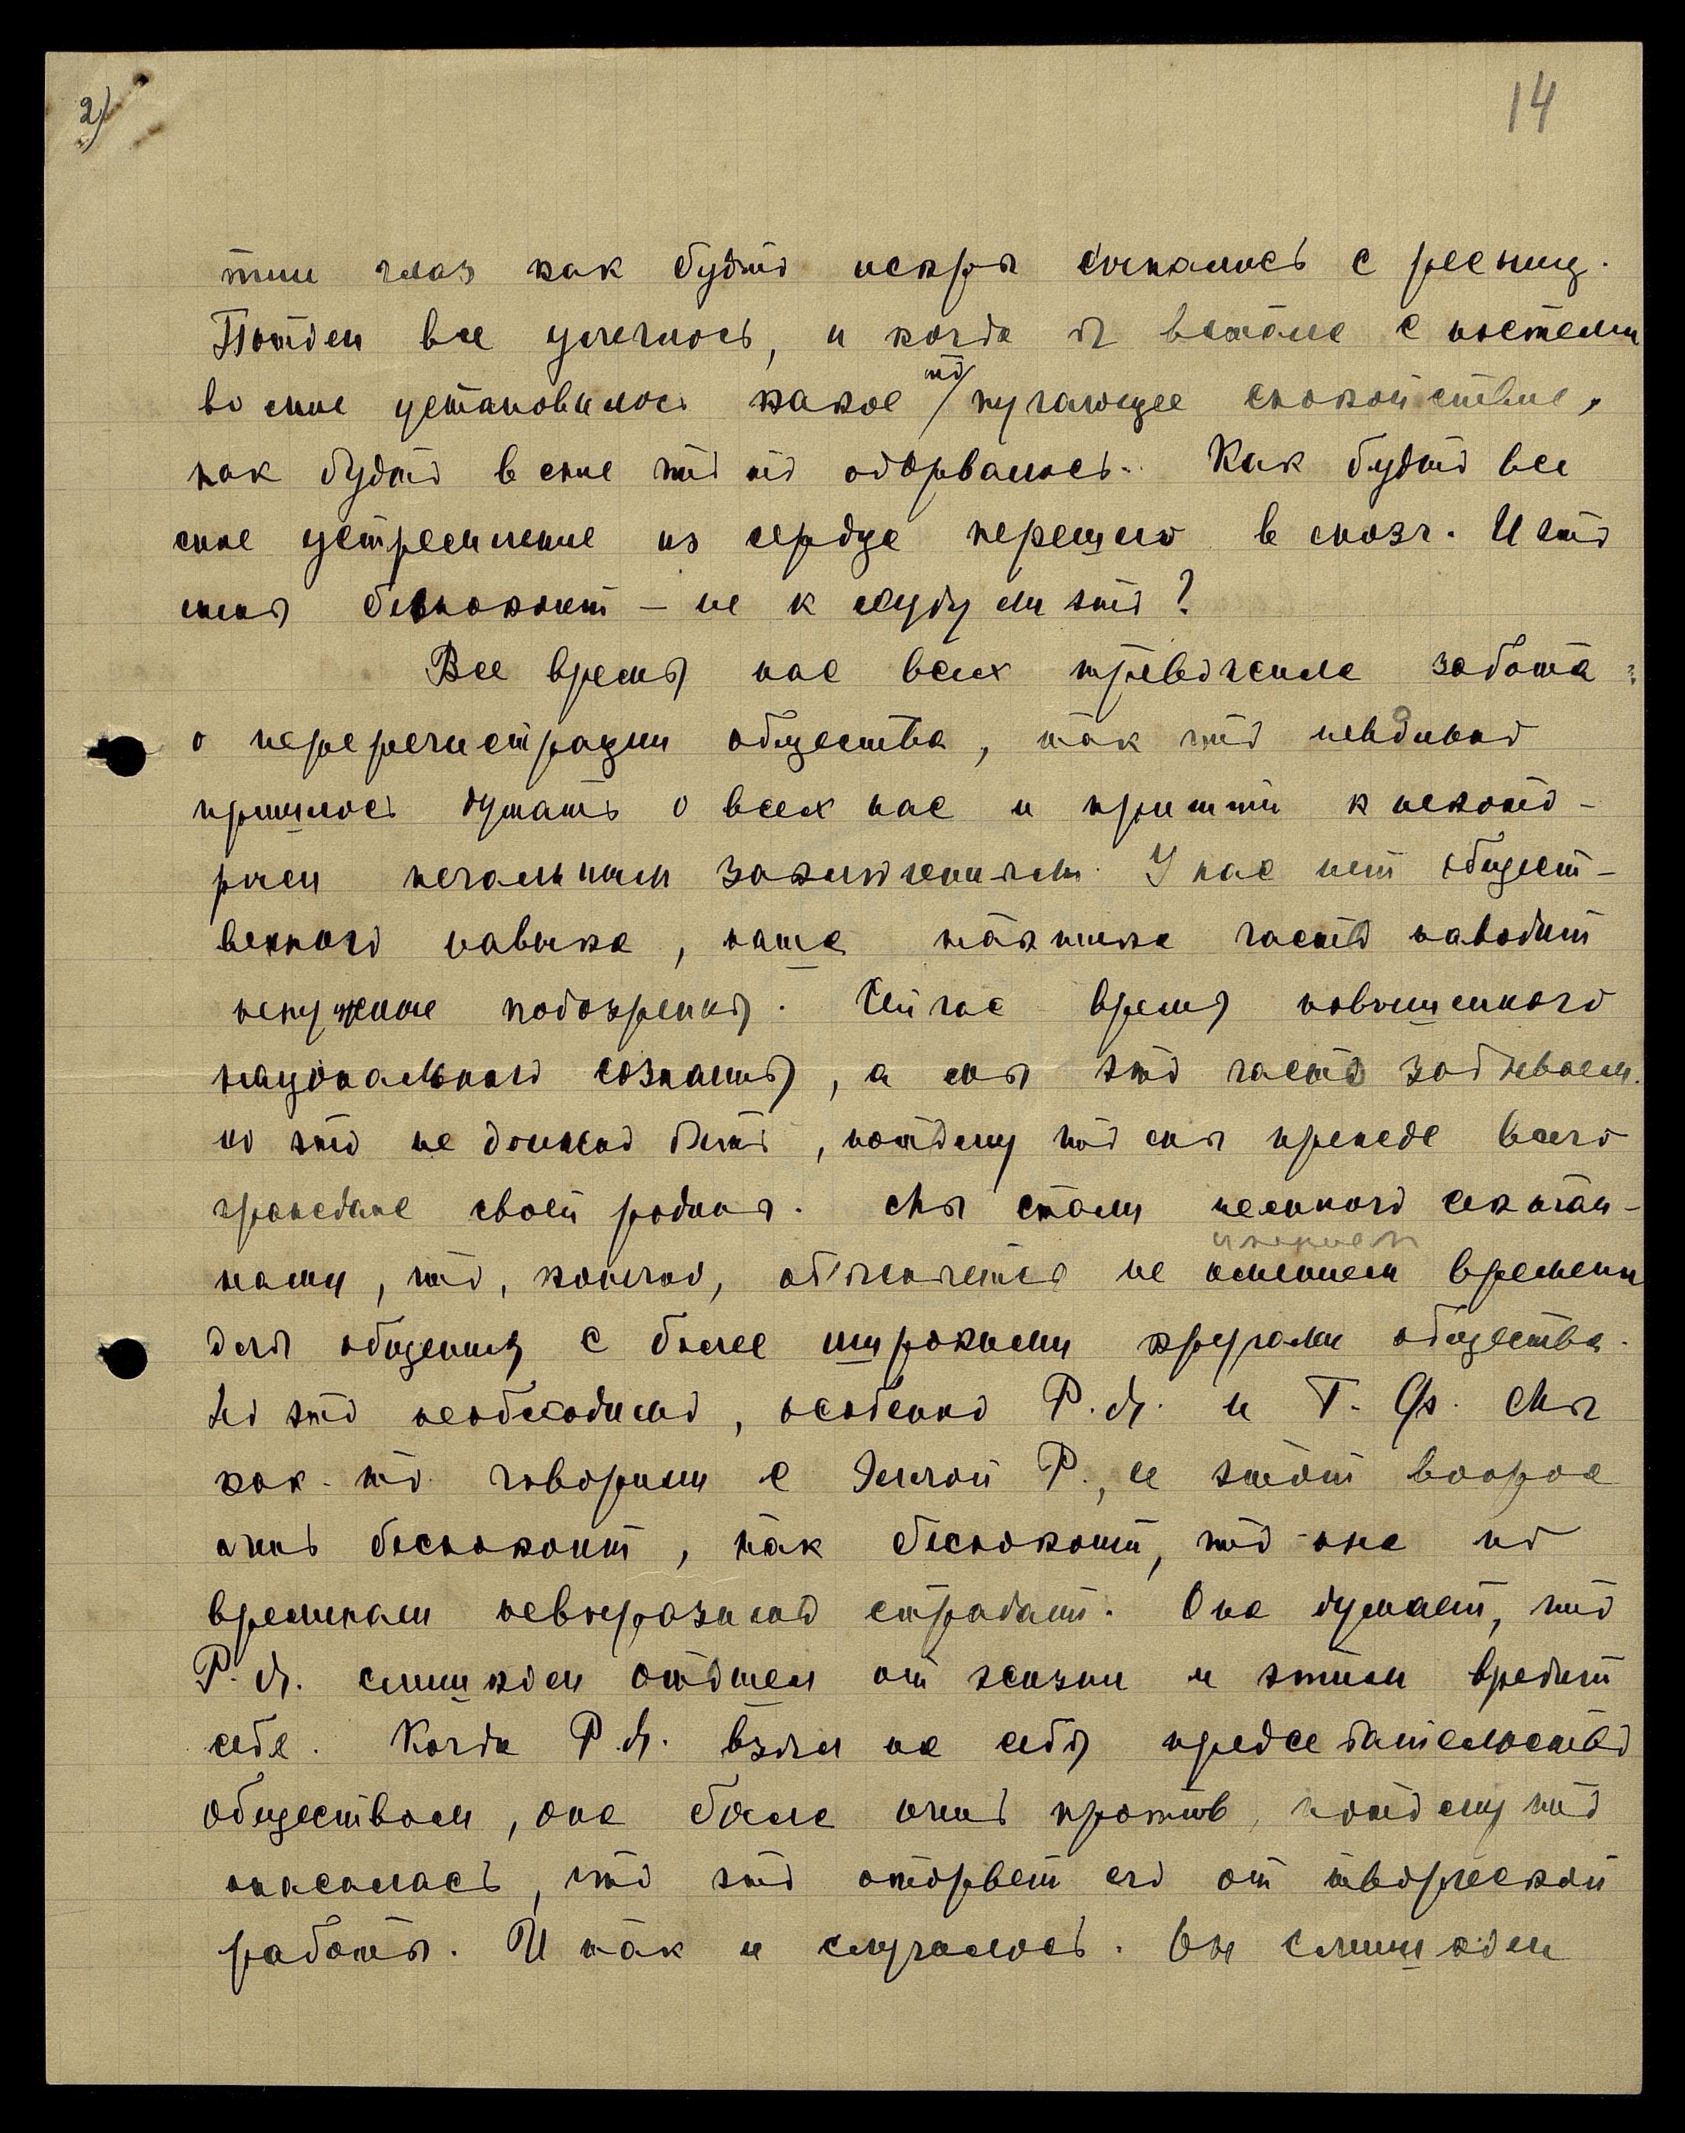 2)
14
тии глаз как будто искры сыпались с ресниц.
Потом все улеглось, и когда я встала с постели
во мне установилось какое то/ пугающее спокойствие,
как будто в мне что то оборвалось. Как будто все
мое устремление из сердца перешло в мозг. И это
меня беспокоит – не к худу ли это?
Все время нас всех тревожила забота
о перерегистрации общества, так что невольно
пришлось думать о всех нас и притти к некото-
рым печальным заключениям. У нас нет общест-
венного навыка, наша тактика часто наводит
ненужные подозрения. Сейчас время повышенного
национального сознания, а мы это часто забываем.
но это не должно быть, потому что мы прежде всего
граждане своей родины. Мы стали немного сектан-
тами, что, конечно, объясняется не имением времени
для общения с более широкими кругами общества.
Но это необходимо, особенно Р. Я. и Г. Ф. Мы
как-то говорили с Эллой Р., ее этот вопрос
очень беспокоит, так беспокоит, что она по
временам невыразимо страдает. Она думает, что
Р. Я. слишком отошел от жизни и этим вредит
себе. Когда Р. Я. взял на себя председательство
обществом, она была очень против, потому что
опасалась, что это оторвет его от творческой
работы. И так и случилось. Он слишком